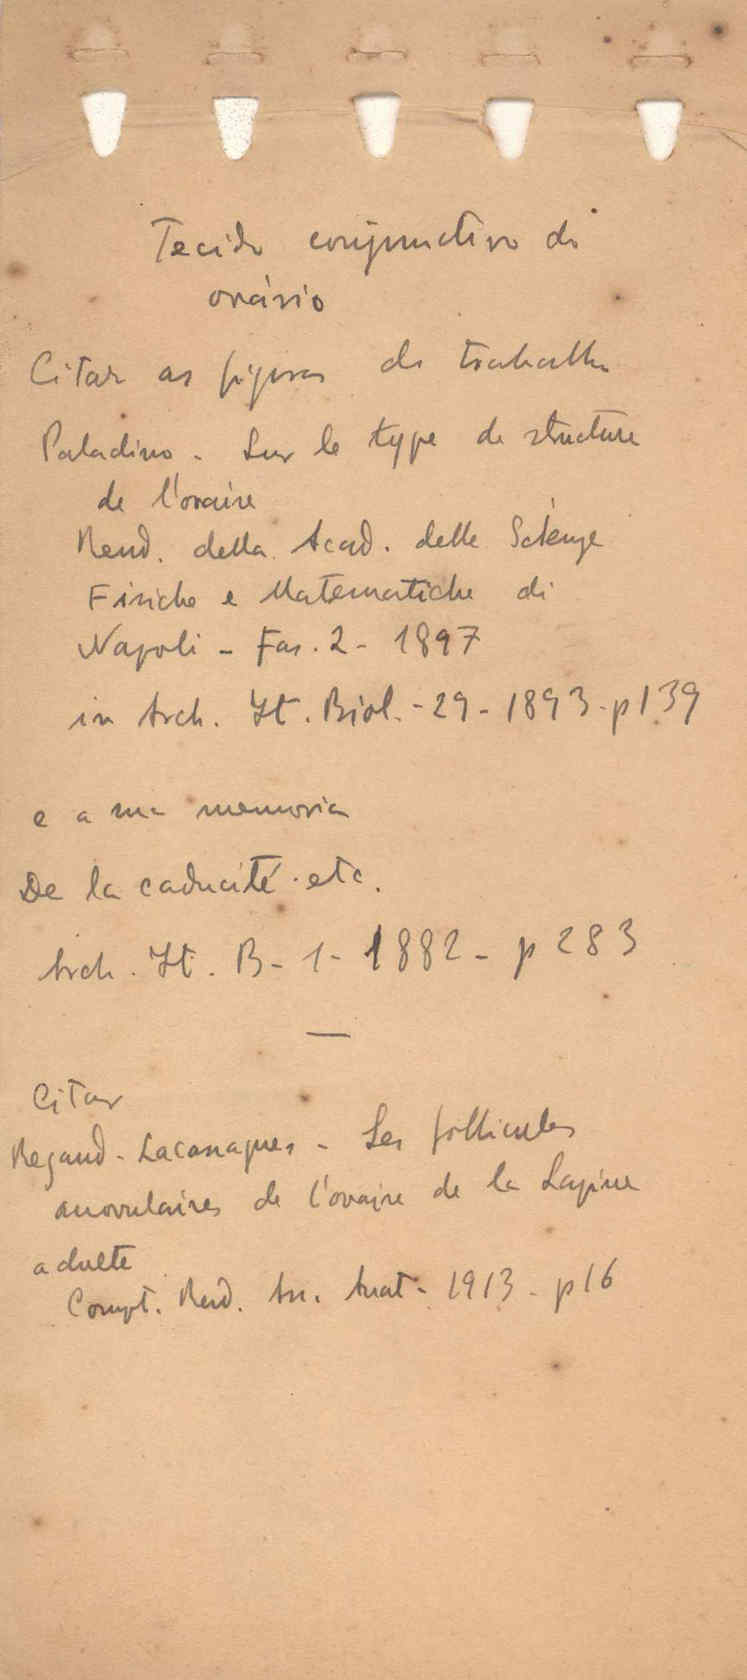 Tecido conjunctivo do
ovário
Citar as figuras do trabalho
Paladino - Sur le type de structure
de l'ovaire
Rend. della Acad. delle Scienze
Fisiche e Matematiche di
Napoli - Fas. 2 - 1897
in Arch. It. Biol. - 29 - 1893 - p 139
e a ma memoria
De la caducité . etc.
Arch. It. B - 1 - 1882 - p 283
Citar
Regaud - Lacassagnes - Les follicules
anovulaires de l'ovaire de la Lapine
adulte
Compt. Rend. Ass. Anat - 1913 - p 16